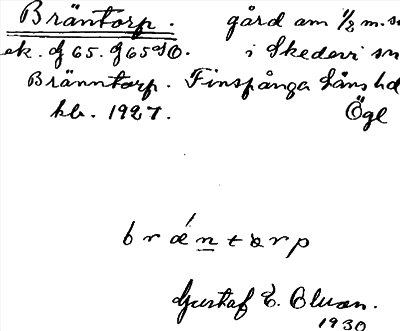 Bräntorp. gård om 1/2 m.
ek. of 65. G65SO. i Skedevi sn
Bränntorp. Finspånga läns hd
kb. 1927. Ögl
bræ´ntɔrp
Gustaf E. Olson.
1930